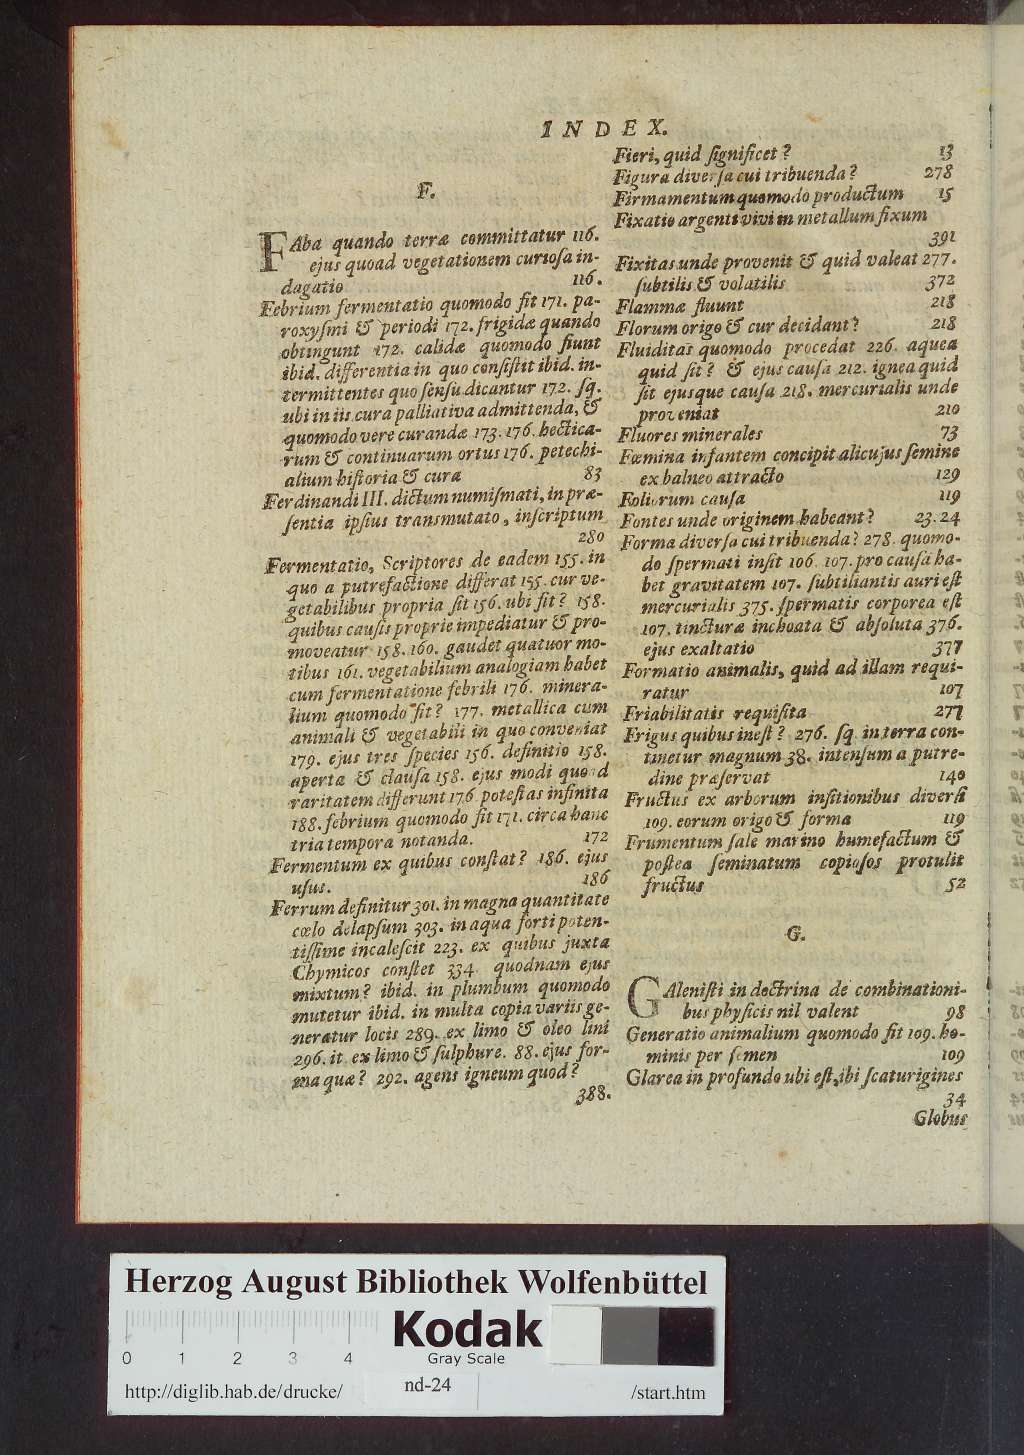 INDEX.
F.
FAba quando terræ committatur 116.
ejus quoad vegetationem curioſa in-
dagatio 116.
Febrium fermentatio quomodo fit 171. pa-
roxyſmi & periodi 172. frigidæ quando
obtingunt 172. calidæ quomodo fiunt
ibid. differentia in quo conſiſtit ibid. in-
termittentes quo ſenſu dicantur 172. ſq.
ubi in iis cura palliativa admittenda, &
quomodo vere curandæ 173. 176. hectica-
rum & continuarum ortus 176. petechi-
alium hiſtoria & cura 83
Ferdinandi III. dictum numiſmati, in præ-
ſentia ipſius transmutato, inſcriptum
280
Fermentatio, Scriptores de eadem 155. in
quo a putrefactione differat 155. cur ve-
getabilibus propria ſit 156. ubi fit? 158.
quibus cauſis proprie impediatur & pro-
moveatur 158. 160. gaudet quatuor mo-
tibus 161. vegetabilium analogiam habet
cum fermentatione febrili 176. minera-
lium quomodo fit? 177. metallica cum
animali & vegetabili in quo conveniat
179. ejus tres ſpecies 156. definitio 158.
aperta & clauſa 158. ejus modi quoad
raritatem differunt 176 poteſtas infinita
188. febrium quomodo fit 171. circa hanc
tria tempora notanda. 172
Fermentum ex quibus conſtat? 186. ejus
uſus. 186
Ferrum definitur 301. in magna quantitate
cœlo delapſum 303. in aqua forti poten-
tiſſime incaleſcit 223. ex quibus juxta
Chymicos conſtet 334. quodnam ejus
mixtum? ibid. in plumbum quomodo
mutetur ibid. in multa copia variis ge-
neratur locis 289. ex limo & oleo lini
296. it. ex limo & ſulphure. 88. ejus for-
ma quæ? 292. agens igneum quod?
388.
Fieri, quid ſignificet? 13
Figura diverſa cui tribuenda? 278
Firmamentum quomodo productum 15
Fixatio argenti vivi in metallum fixum
391
Fixitas unde provenit & quid valeat 277.
ſubtilis & volatilis 372
Flammæ fluunt 218
Florum origo & cur decidant? 218
Fluiditas quomodo procedat 226. aquea
quid ſit? & ejus cauſa 212. ignea quid
ſit ejusque cauſa 218. mercurialis unde
proveniat 210
Fluores minerales 73
Fœmina infantem concipit alicujus ſemine
ex balneo attracto 129
Foliorum cauſa 119
Fontes unde originem habeant? 23. 24
Forma diverſa cui tribuenda? 278. quomo-
do ſpermati inſit 106. 107. pro cauſa ha-
bet gravitatem 107. ſubtiliantis auri eſt
mercurialis 375. ſpermatis corporea eſt
107. tincturæ inchoata & abſoluta 376.
ejus exaltatio 377
Formatio animalis, quid ad illam requi-
ratur 107
Friabilitatis requiſita 277
Frigus quibus ineſt? 276. ſq. in terra con-
tinetur magnum 38. intenſum a putre-
dine præſervat 140
Fructus ex arborum inſitionibus diverſi
109. eorum origo & forma 119
Frumentum ſale marino humefactum &
poſtea ſeminatum copioſos protulit
fructus 52
G.
GAleniſti in doctrina de combinationi-
bus phyſicis nil valent 98
Generatio animalium quomodo fit 109. ho-
minis per ſemen 109
Glarea in profundo ubi eſt, ibi ſcaturigines
34
Globus
Herzog August Bibliothek Wolfenbüttel
Kodak
Gray Scale
0 1 2 3 4
http://diglib.hab.de/drucke/ nd-24 /start.htm